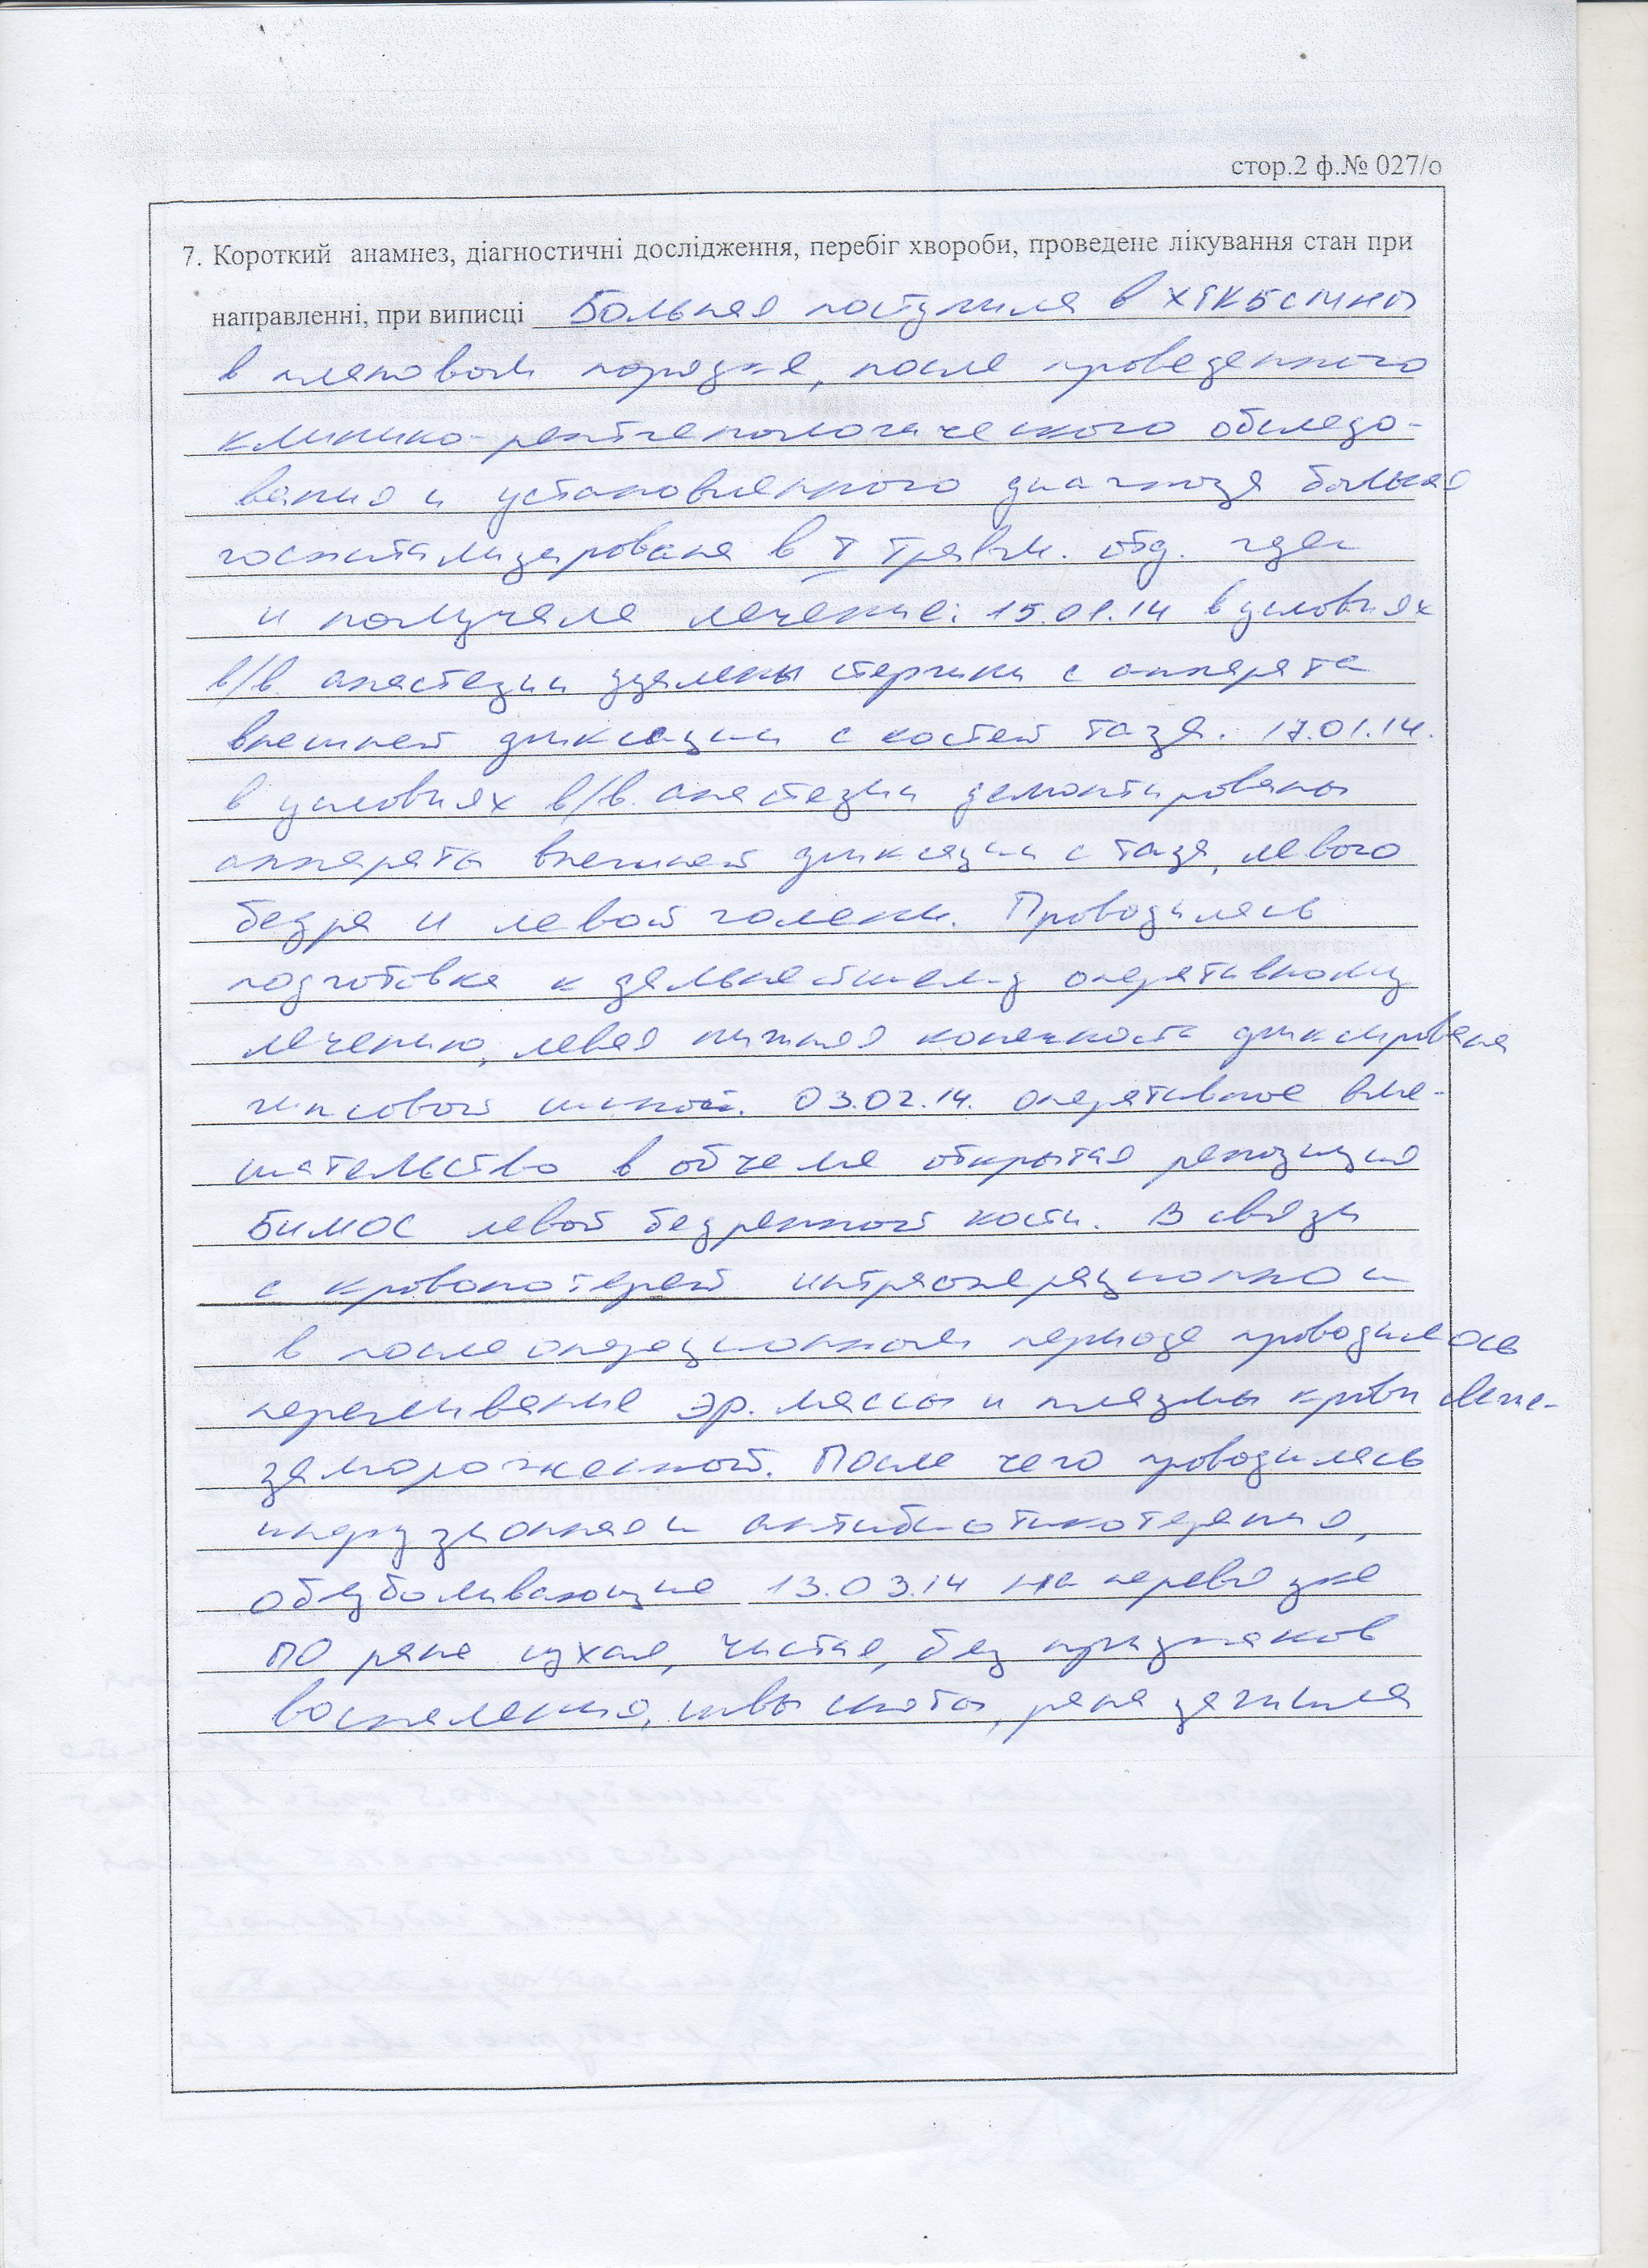 стор.2 ф.№ 027/о
7. Короткий анамнез, діагностичні дослідження, перебіг хвороби, проведене лікування стан при
направленні, при виписці Больная поступила в ХГКБСНМП
в плановом порядке, после проведенного
клинико-рентгенологического обследо-
вания и установленного диагноза больная
госпитализирована в I травм. отд. где
и получала лечение: 15.01.14 в условиях
в/в анестезии удалены стержни с аппарата
внешней фиксации с костей таза. 17.01.14.
в условиях в/в. анестезии демонтированы
аппараты внешней фиксации с таза, левого
бедра и левой голени. Проводилась
подготовка к дальнейшему оперативному
лечению, левая нижняя конечность фиксирована
гипсовой шиной. 03.02.14. оперативное вме-
шательство в обчеме открытая репозиция
БИМОС левой бедренной кости. В связи
с кровопотерей интраоперационно и
в послеоперационном периоде проводилось
переливание эр. массы и плазмы крови свеже-
замороженной. После чего проводилась
инфузионная и антибиотикотерапия,
обезболивающие 13.03.14 на перевязке
ПО рана сухая, чистая, без признаков
воспаления, швы сняты, рана зажила